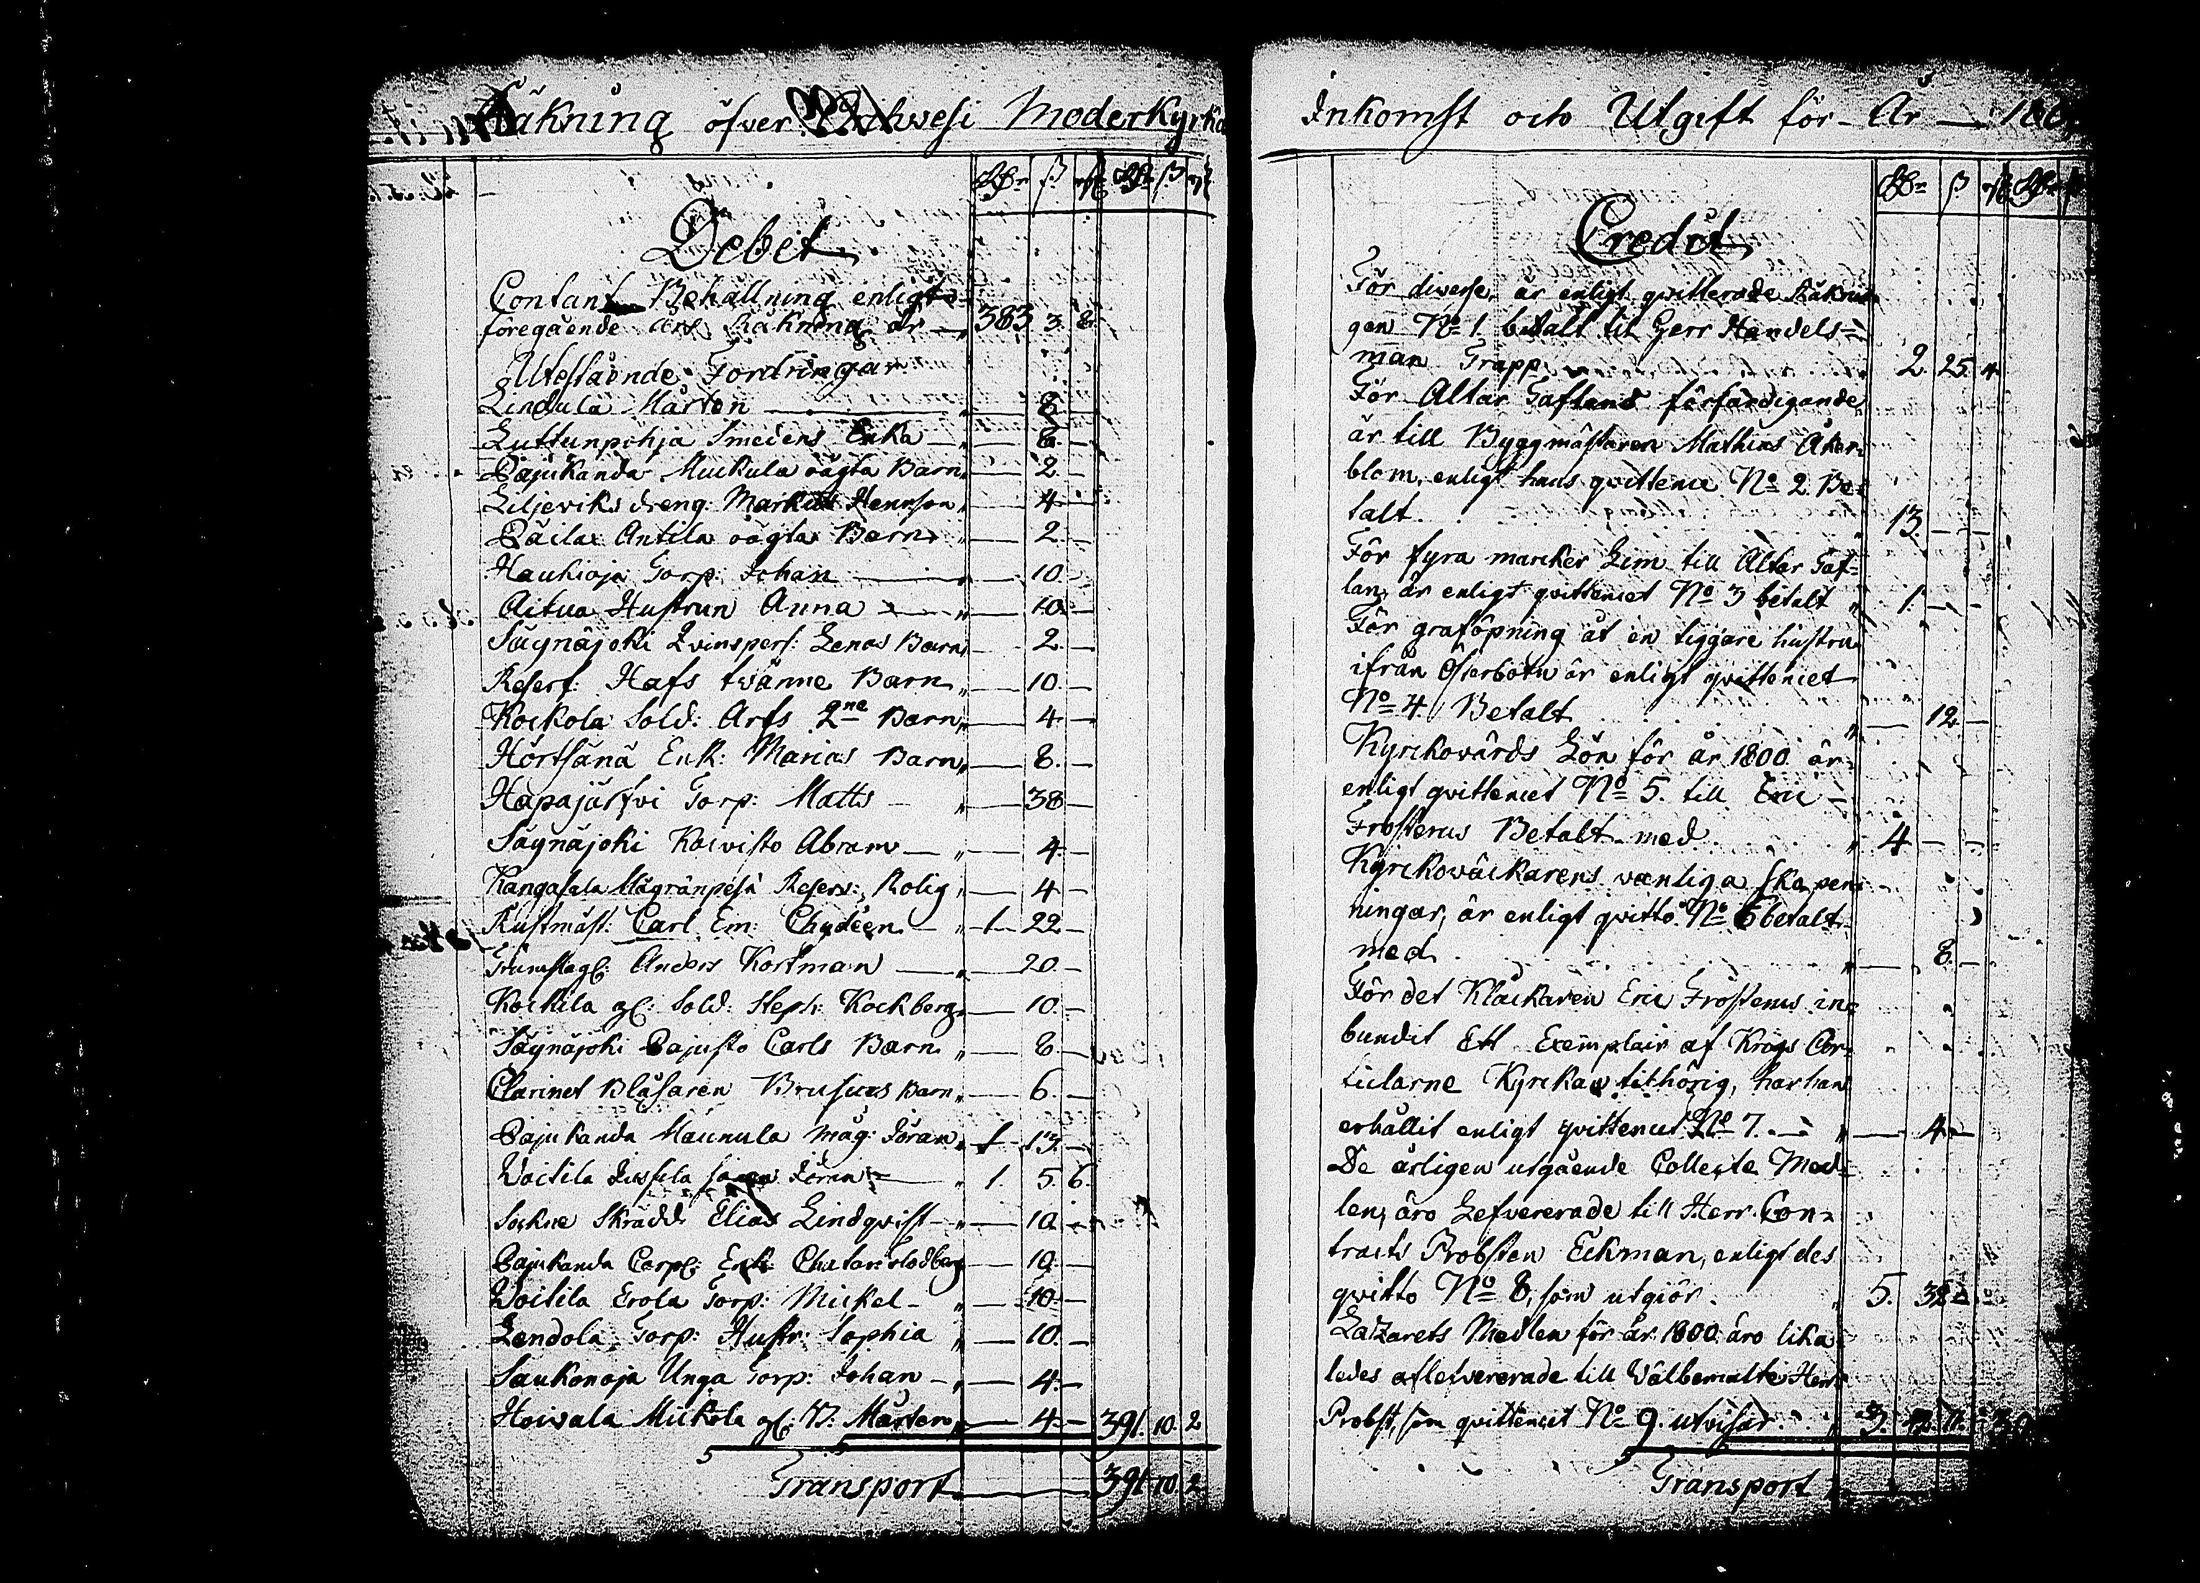 Räkning öfver Moderkyrko
Debet
Contant Behållning enligt
föregående års Räkning är — 383 3. 8.
Utestående Fordringar
Lindula Mårten — 8 —
Luttunpohja Smedens Enka — 8 —
Pajukanda Muckula oägta Barn — 2 —
Liljeviks dreng Markus Hennson — 4 —
Päilax Antila oägta Barn — 2 —
Haukioja Torp: Johan — 10 —
Aitua Hustrun Anna — 10 —
Säynäjoki Qvinspers: Lenas Barn — 2 —
Reserf: Hafs twänne Barn — 10 —
Kockola Sold: Arfs 2ne Barn — 4 —
Hörtsänä Enk: Marias Barn — 8 —
Hapajärfvi Torp: Matts — 38 —
Säynäjoki Koivisto Abram — 4 —
Kangasala Reserv: Rolig — 4 —
Rustmäst: Carl Em: Chydéen — 1 22 —
Anders Kortman — 20 —
Kockila gl: Sold: Steph: Kockberg — 10 —
Säynäjoki Pajusto Carls Barn — 8 —
Clarinet Blåsaren Brusiuas Barn — 6 —
Pajukanda Maunula måg: Jöran — 1 13 —
Woitila Jussila Jöran — 1. 5. 6.
Sockne Skrädd: Elias Lindqvist — 10 —
Pajukanda Corpl: Enk: — 10 —
Woitila Erola Torp: Mickel — 10 —
Lendola Torp: Hustr: Sophia — 10 —
Saukonoja Unga Torp: Johan — 4 —
Hoivala Mickola gl: V: Mårten — 4 — 391. 10. 2
Transport — 391. 10. 2
Inkomst och Utgift för År —
Credit
För diverse, är enligt qvitterade Räknin
gen No 1 betalt til Herr Handels=
man Trapp 2. 25. 4
För Altar Taflans förfärdigande
är till Byggmästaren Mathias Åker=
blom, enligt hans qvittence No 2 Be=
talt. 13. — —
För fyra marcker Lim till Altar Taf=
lan, är enligt qvittencet No 3 betalt 1. — —
För graföpning åt en tiggare hustru
ifrån Österbotn är enligt qvittencet
No 4 Betalt — 12 —
Kyrckovärds Lön för år 1800 är
enligt qvittencet No 5. till Eric —
Frosterus Betalt med 4 — —
Kyrckoväckarens vanliga
ningar, är enligt qvitto No 6 betalt
med — 8. —
För det Klåckaren Eric Frosterus in=
bundit Ett Exemplair af Krigs Ar=
ticlarne Kyrckan tilhörig, har han
erhållit enligt qvittencet No 7. — 4 —
De årligen utgående Collecte Med=
len, äro Lefvererade till Herr Con=
tracts Probsten Eckman, enligt des
qvitto No 8, som utgiör. 5. 32
Lazarets Medlen för år 1800 äro lika=
ledes aflefvererade till Välbemälte Herr
Probst, som qvittencet No 9. utvisar. 3.
Transport